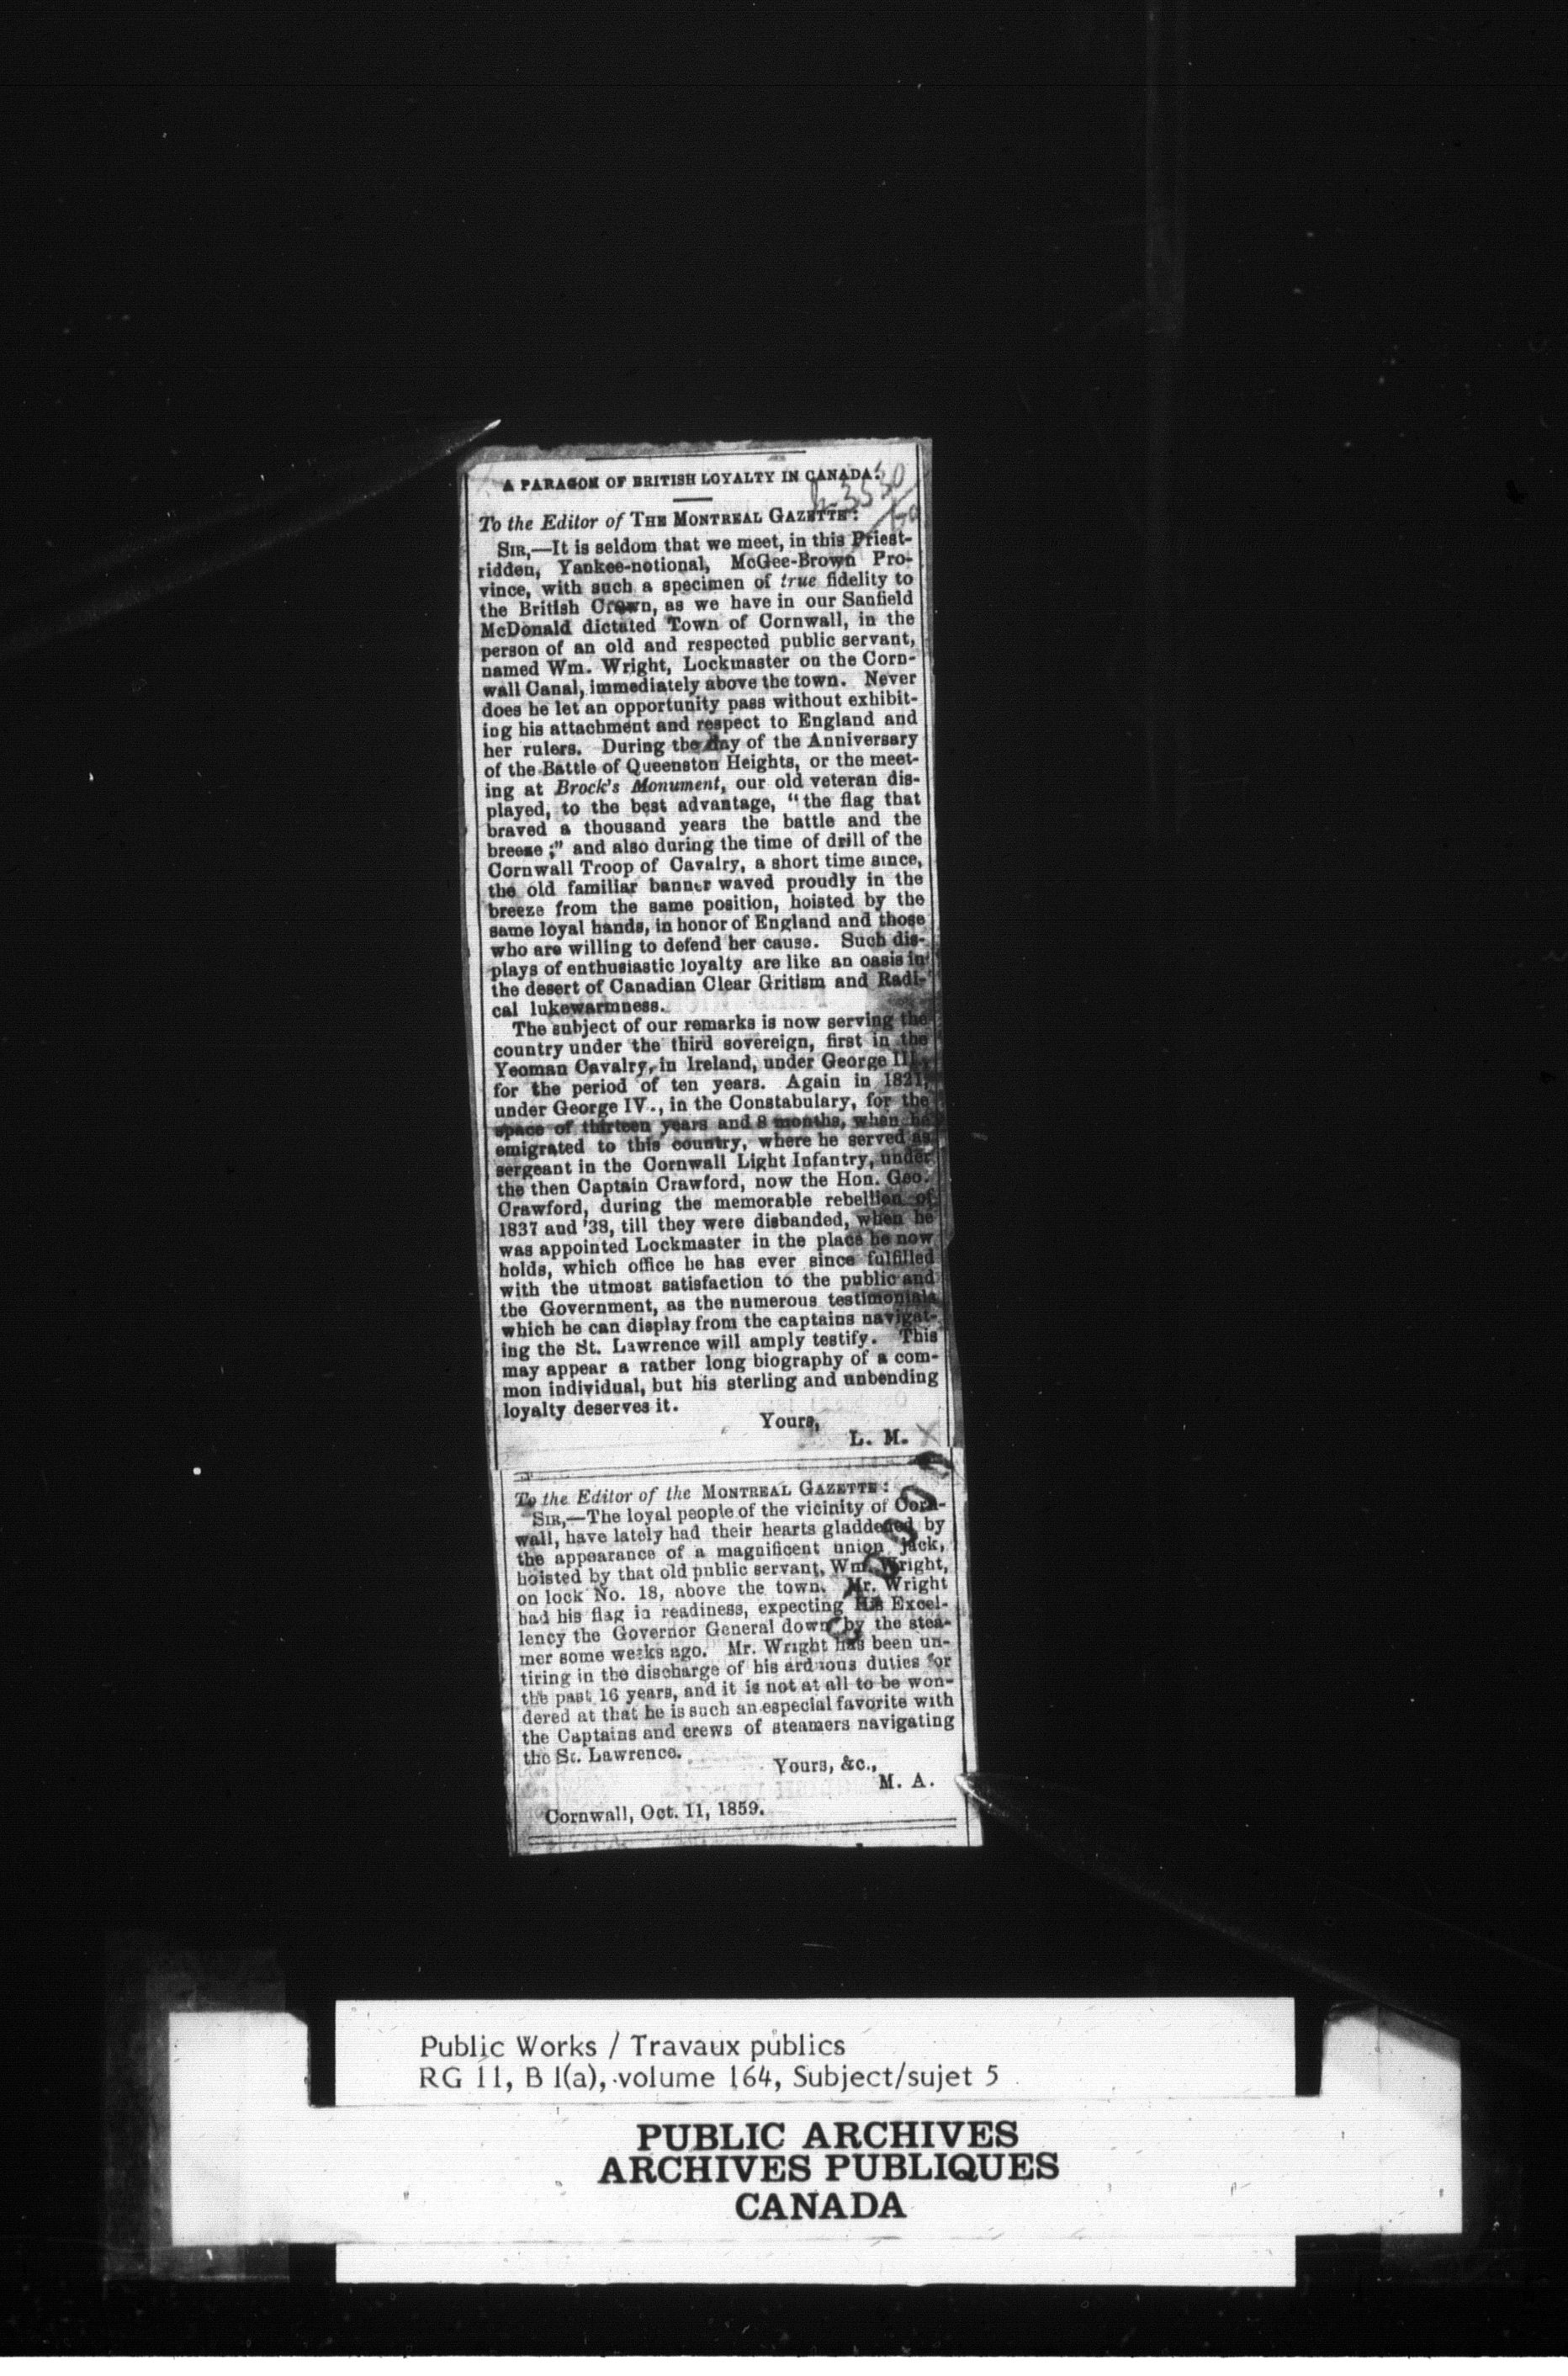 A PARAGON OF BRITISH LOYALTY IN CANADA.
To the Editor of THE MONTREAL GAZETTE:
SIR,—It is seldom that we meet, in this Priest-
ridden, Yankee-notional, McGee-Brown Pro-
vince, with such a specimen of true fidelity to
the British Crown, as we have in our Sanfield
McDonald dictated Town of Cornwall, in the
person of an old and respected public servant,
named Wm. Wright, Lockmaster on the Corn-
wall Canal, immediately above the town. Never
does he let an opportunity pass without exhibit-
ing his attachment and respect to England and
her rulers. During the day of the Anniversary
of the Battle of Queenston Heights, or the meet-
ing at Brock's Monument, our old veteran dis-
played, to the best advantage, "the flag that
braved a thousand years the battle and the
breeze;" and also during the time of drill of the
Cornwall Troop of Cavalry, a short time since,
the old familiar banner waved proudly in the
breeze from the same position, hoisted by the
same loyal hands, in honor of England and those
who are willing to defend her cause. Such dis-
plays of enthusiastic loyalty are like an oasis in
the desert of Canadian Clear Gritism and Radi-
cal lukewarmness.
The subject of our remarks is now serving the
country under the third sovereign, first in the
Yeoman Cavalry, in Ireland, under George III.,
for the period of ten years. Again in 1821,
under George IV., in the Constabulary, for the
space of thirteen years and 8 months, when he
emigrated to this country, where he served as
sergeant in the Cornwall Light Infantry, under
the then Captain Crawford, now the Hon. Geo.
Crawford, during the memorable rebellion of
1837 and '38, till they were disbanded, when he
was appointed Lockmaster in the place he now
holds, which office he has ever since fulfilled
with the utmost satisfaction to the public and
the Government, as the numerous testimonials
which he can display from the captains navigat-
ing the St. Lawrence will amply testify. This
may appear a rather long biography of a com-
mon individual, but his sterling and unbending
loyalty deserves it.
Yours,
L. M.
To the Editor of the MONTREAL GAZETTE:
SIR,—The loyal people of the vicinity of Corn-
wall, have lately had their hearts gladdened by
the appearance of a magnificent union jack,
hoisted by that old public servant, Wm. Wright,
on lock No. 18, above the town. Mr. Wright
had his flag in readiness, expecting His Excel-
lency the Governor General down by the stea-
mer some weeks ago. Mr. Wright has been un-
tiring in the discharge of his arduous duties for
the past 16 years, and it is not at all to be won-
dered at that he is such an especial favorite with
the Captains and crews of steamers navigating
the St. Lawrence.
Yours, &c.,
M. A.
Cornwall, Oct. 11, 1859.
Public Works / Travaux publics
RG 11, B 1(a), volume 164, Subject/sujet 5
PUBLIC ARCHIVES
ARCHIVES PUBLIQUES
CANADA